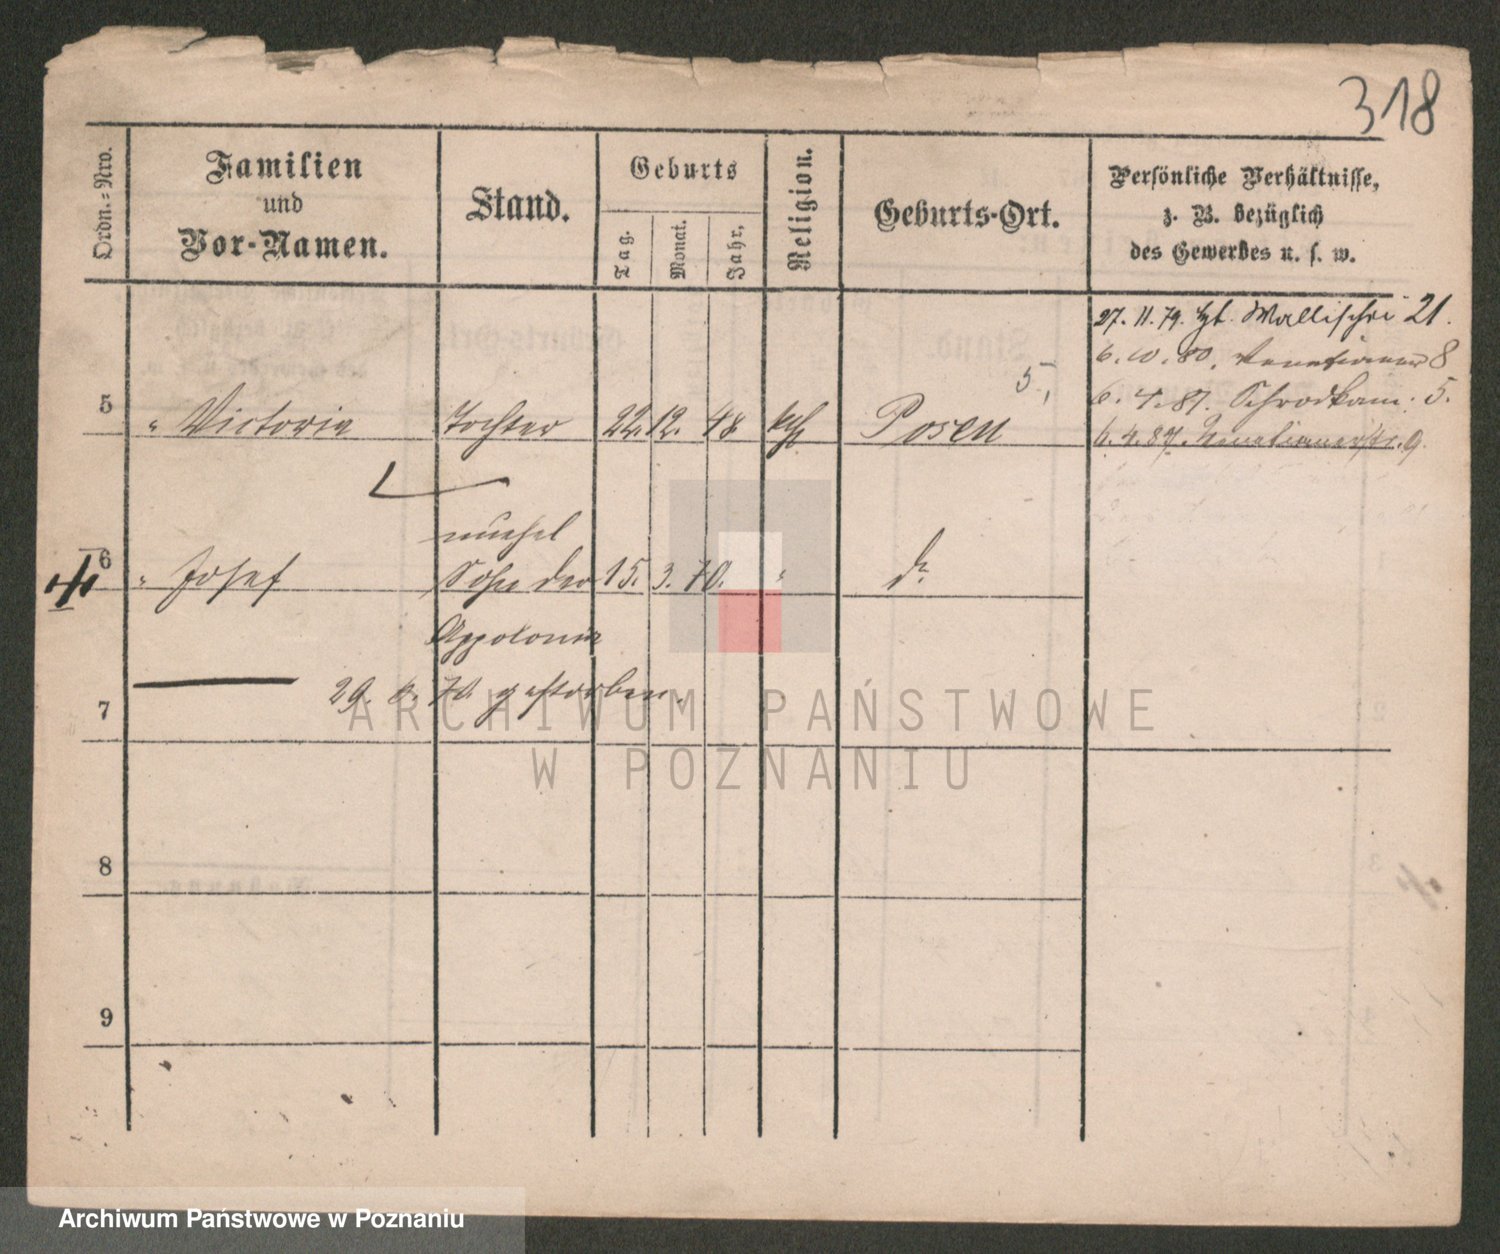 318
Ordn.-Nro.
Familien
und
Vor-Namen.
Stand.
Geburts
Tag.
Monat.
Jahr.
Religion.
Geburts-Ort.
Persönliche Verhältnisse,
z. B. bezüglich
des Gewerbes u. s. w.
27. 11. 79. Wallischei 21.
6. 10. 80. Venetianer 8
6. 4. 81. Schrodkam. 5.
6. 4. 87. Venetianerstr. 9.
5 " Victoria Tochter 22. 12. 48 kth Posen 5,
unehel
6 " Josef Sohn der 15. 3. 70. " do
Appolonia
29. 70. gestorben.
7
8
9
ARCHIWUM PAŃSTWOWE
W POZNANIU
Archiwum Państwowe w Poznaniu